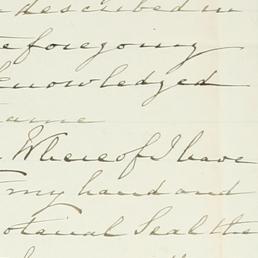 described in
foregoing
knowledged
same
Whereof I have
my hand and
otarial Seal the